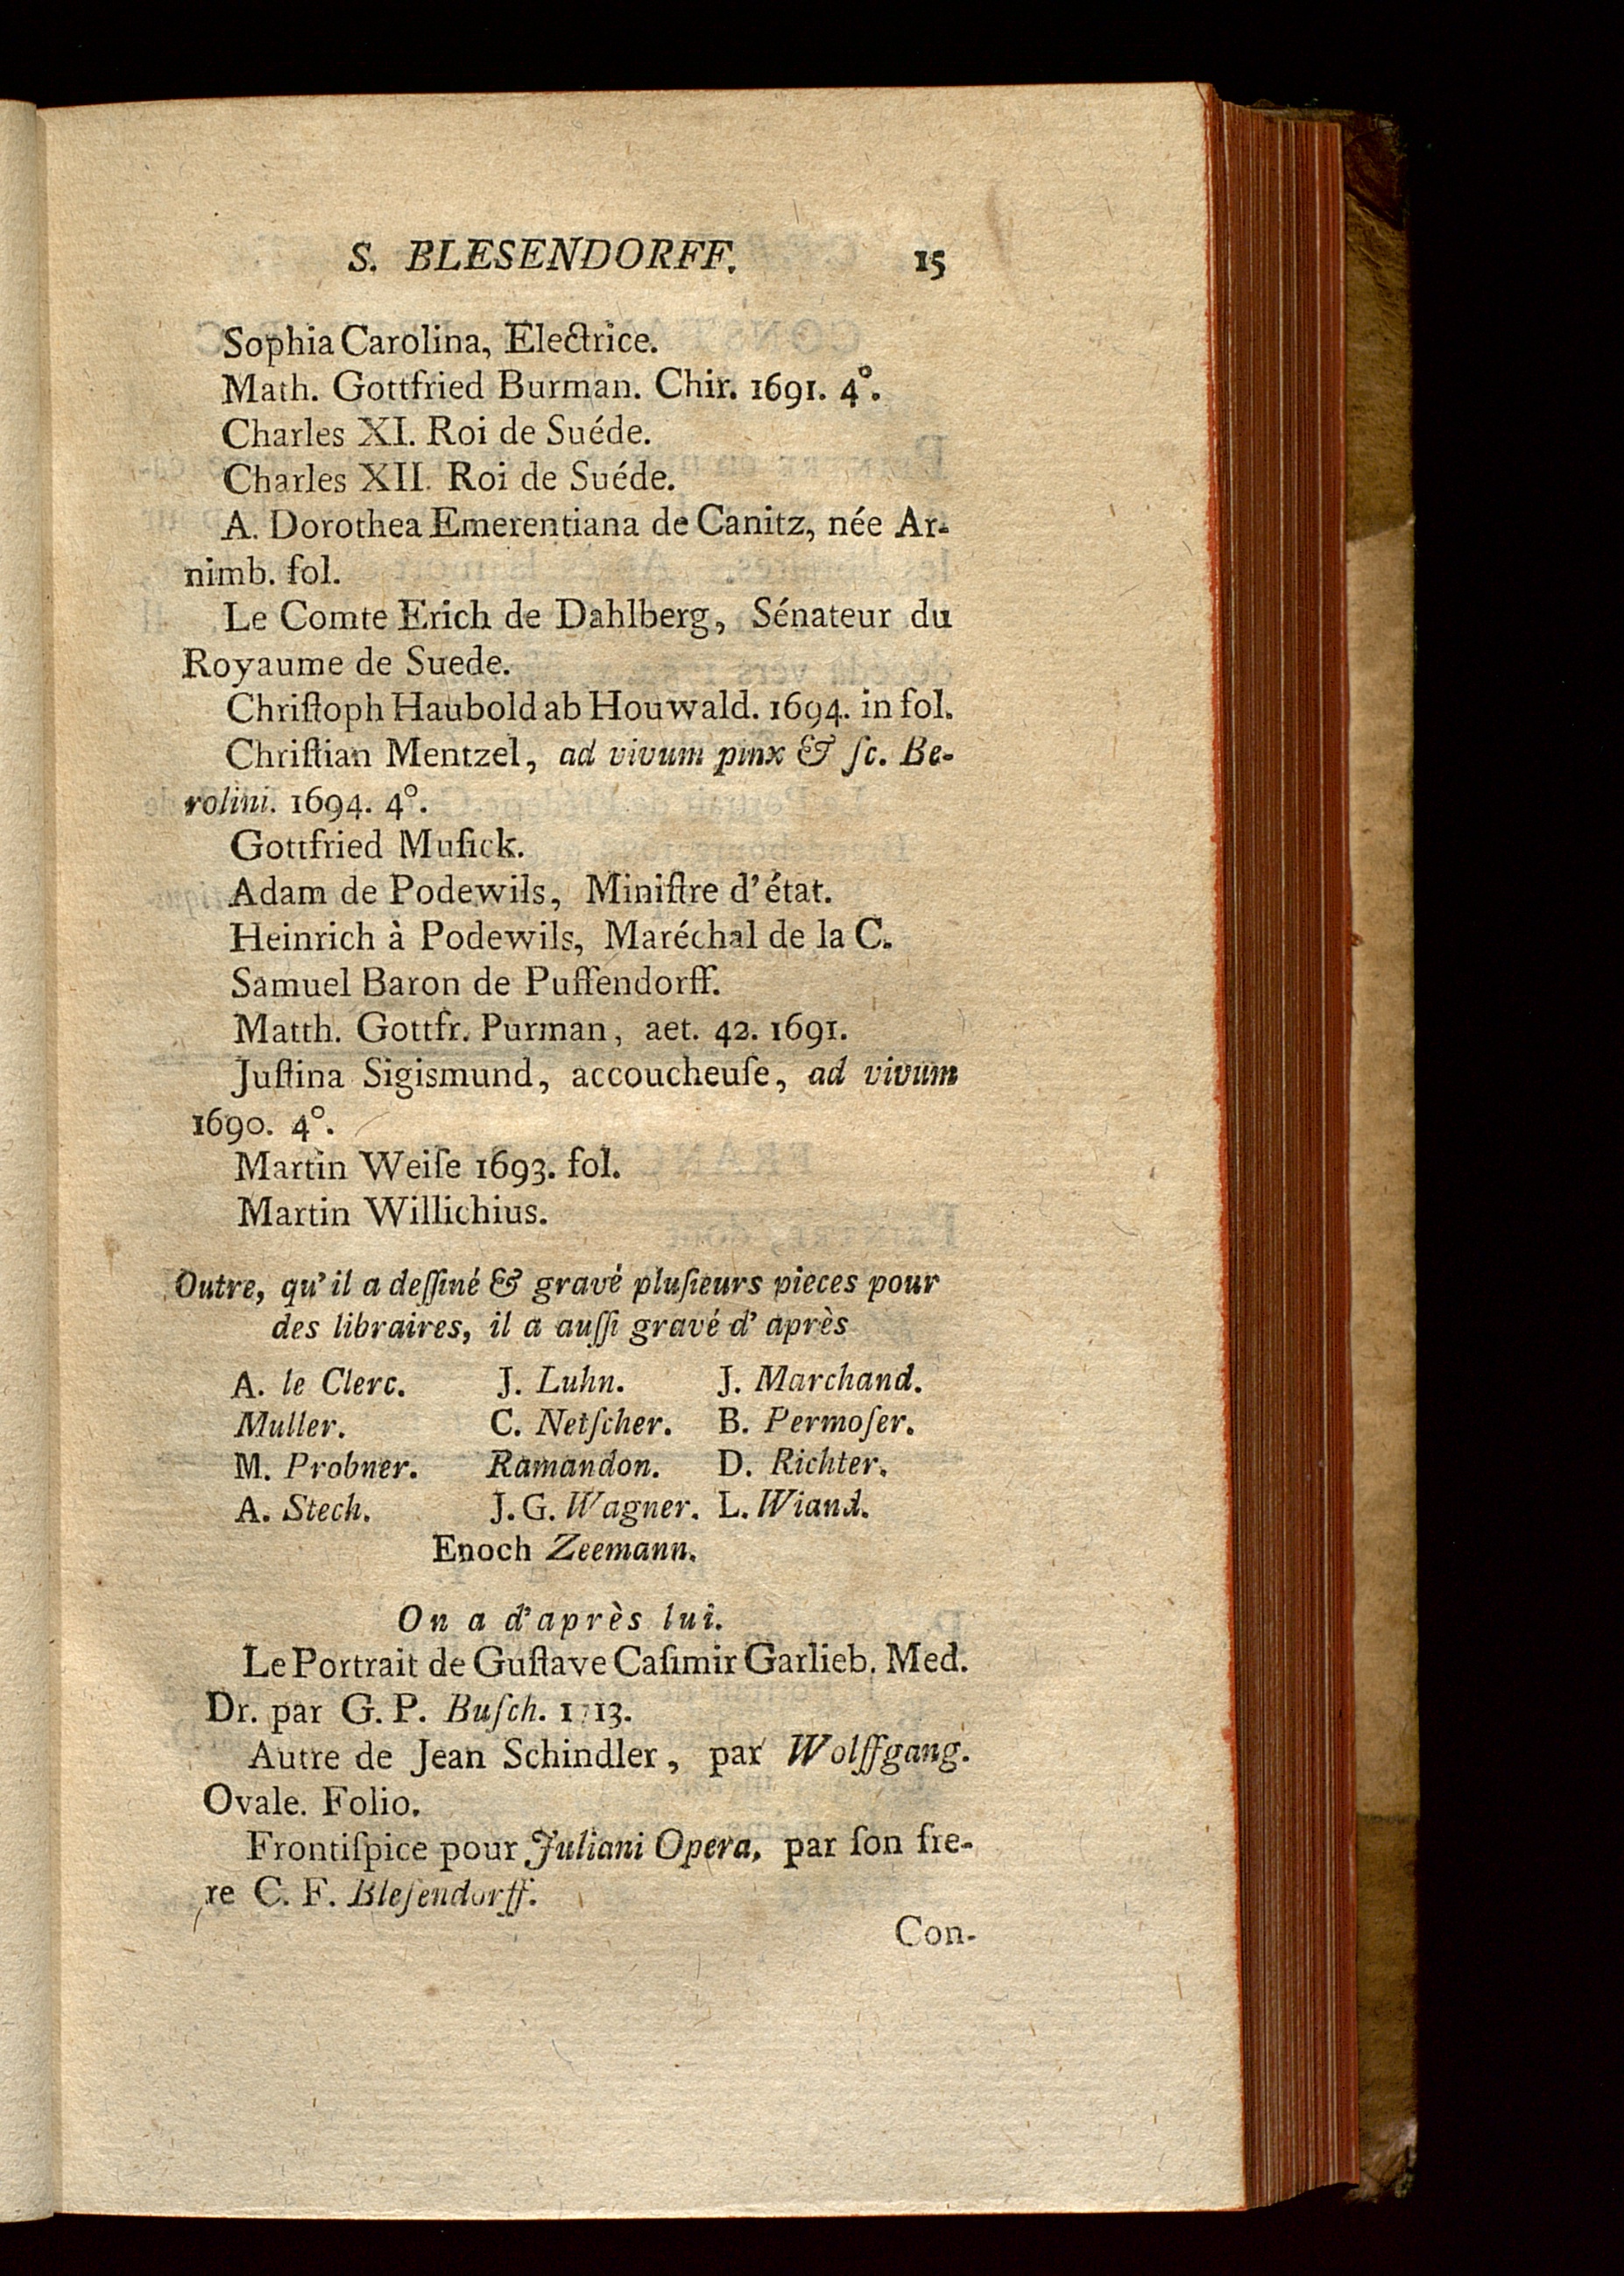 S. BLESENDORFF. 15
Sophia Carolina, Electrice.
Math. Gottfried Burman. Chir. 1691. 4°.
Charles XI. Roi de Suéde.
Charles XII. Roi de Suéde.
A. Dorothea Emerentiana de Canitz, née Ar-
nimb. fol.
Le Comte Erich de Dahlberg, Sénateur du
Royaume de Suede.
Chriſtoph Haubold ab Houwald. 1694. in fol.
Chriſtian Mentzel, ad vivum pinx & ſc. Be-
rolini. 1694. 4°.
Gottfried Muſick.
Adam de Podewils, Miniſtre d'état.
Heinrich à Podewils, Maréchal de la C.
Samuel Baron de Puffendorff.
Matth. Gottfr. Purman, aet. 42. 1691.
Juſtina Sigismund, accoucheuſe, ad vivum
1690. 4°.
Martin Weiſe 1693. fol.
Martin Willichius.
Outre, qu'il a deſſiné & gravé pluſieurs pieces pour
des libraires, il a auſſi gravé d'après
A. le Clerc. J. Luhn. J. Marchand.
Muller. C. Netſcher. B. Permoſer.
M. Probner. Ramandon. D. Richter.
A. Stech. J. G. Wagner. L. Wiand.
Enoch Zeemann.
On a d'après lui.
Le Portrait de Guſtave Caſimir Garlieb. Med.
Dr. par G. P. Buſch. 1713.
Autre de Jean Schindler, par Wolffgang.
Ovale. Folio.
Frontiſpice pour Juliani Opera, par ſon fre-
re C. F. Bleſendorff.
Con-